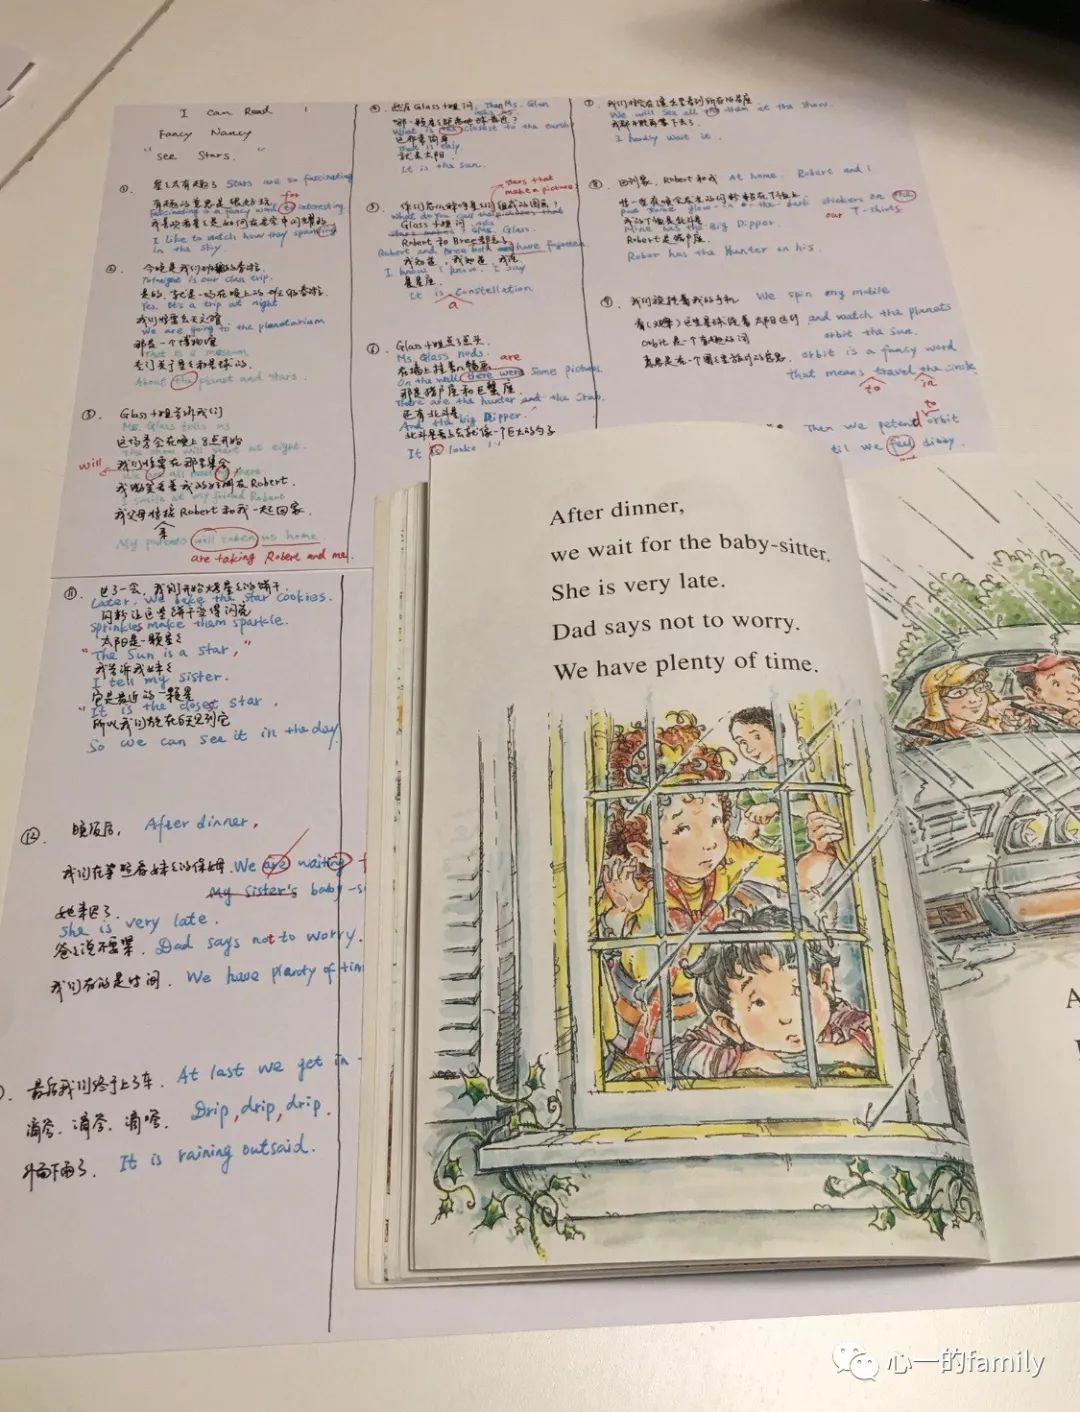 I can Read !
Fancy Nancy
"See Stars. "
①. 星星太有趣了 Stars are so fascinating
for
Fascinating is a fancy word to interesting.
I like to watch how they
in the sky
②. 今晚是我们的
Tonight is our class trip.
是的,
Yes. It's a trip at night
我们将要去天文馆
We are going to the planetarium
那是一个博物馆
That is a museum
专门关于星星和星球的.
About the planet and stars.
③. Glass小姐告诉我们
Ms. Glass tells us
这场秀会在晚上8点开始
The show will start at eight.
will
我们将要在那里集合
all meet there.
Robert.
I smile at my friend Robert
我父母将接Robert和我一起回家.
来
My parents will taken us home.
are taking Robert and me.
④. 然后Glass小姐问, Then Ms. Glass
asks us.
What is closest to the earth
That is easy.
就是太阳
It is the sun.
stars that
make a picture?
⑤.
What do you call the pictures that
stars makes? asks Ms. Glass.
Glass小姐问
Robert 和 Bree
Robert and Bree both
我知道, 我知道, 我说
I know, I know, I say
星座.
It is Constellation
a
⑥. Glass小姐点点头
Ms. Glass nods.
are
在墙上挂着
On the wall there were some pictures.
那是猎户座和巨蟹座.
There are the hunter and the crab.
还有北斗星
And the big Dipper.
北斗星看起来就像一个巨大的勺子
It is looke
⑦. 我们将会在这
We will see all them at the show.
我都
I hardly wait it.
⑧. 回到家, Robert和我 At home. Robert and I
put some glow-in-the-dark stickers on the
our T-shirts
Mine has the Big Dipper.
Robert是猎户座.
Rober has the Hunter on his.
⑨. 我们旋挂着我的手机 We spin my mobile
and watch the planets
orbit the sun.
orbit 是一个有趣的词
orbit is a fancy word
that means travel the circle.
to in
to
Then we petend orbit
til we feel dizzy.
⑪. 过了一会, 我们开始烤星星的饼干.
Later, We bake the star cookies.
闪粉让这些饼干变得闪亮
sprinkles make them sparkle.
太阳是一颗星星
"The Sun is a star,"
我告诉我妹妹
I tell my sister.
它是最近的一颗星
"It is the closet star.
所以我们能在白天见到它
So we can see it in the day.
⑫. 晚饭后, After dinner,
我们在等照看妹妹的保姆. We are waiting
my sister's baby-s
她来迟了.
She is very late.
爸爸说不要担心. Dad says not to worry.
我们有的是时间. We have planty of tim
最后我们终于上了车. At last we get in
滴答, 滴答, 滴答. Drip, drip, drip.
外面下雨了. It is raining outsaid.
After dinner,
we wait for the baby-sitter.
She is very late.
Dad says not to worry.
We have plenty of time.
A
心一的family